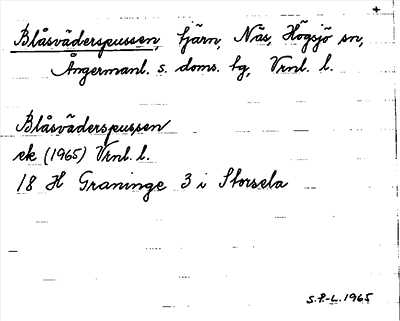 Blåsväderspussen, tjärn, Näs, Högsjö sn,
Ångermanl. s. doms. tg, Vrnl. l.
Blåsväderspussen
ek (1965) Vrnl. l.
18 H Graninge 3 i Storsela
S.P.-L. 1965